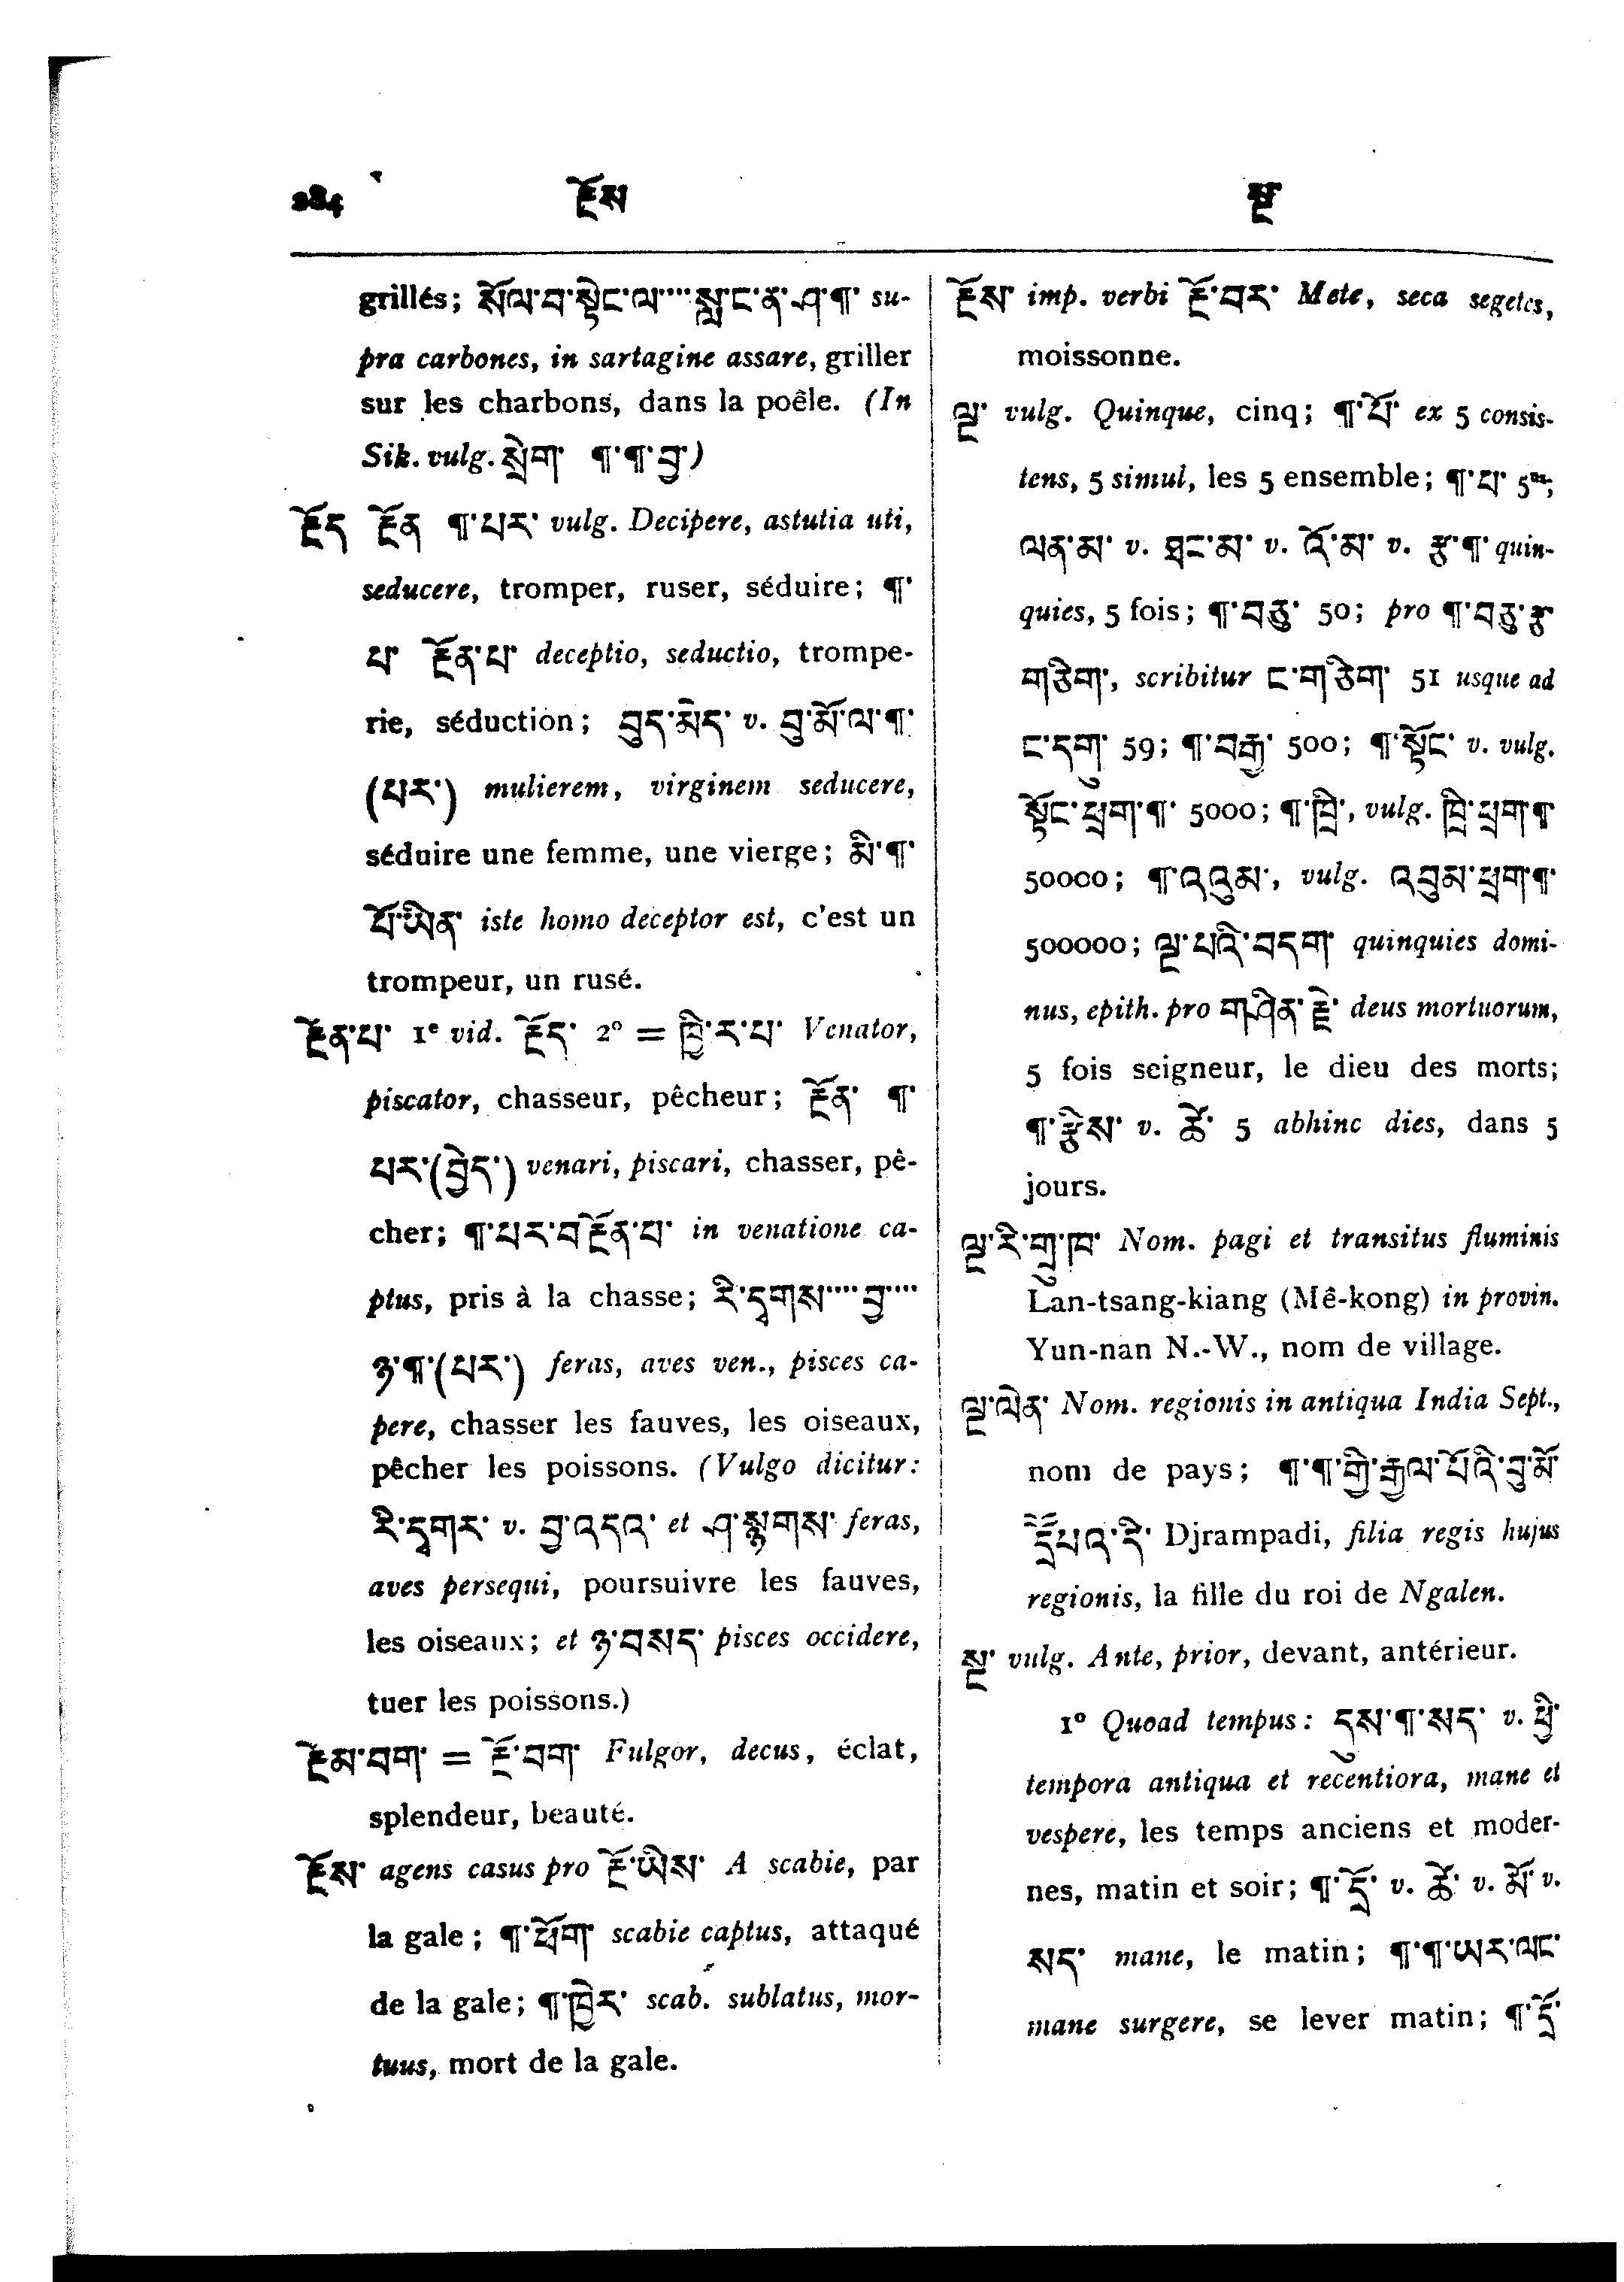 284 རྔོས སྔ
grillés; སོལ་བ་སྟེང་ལ་་་་སླ་ང་ན་ཤ་¶་ su-
pra carbones, in sartagine assare, griller
sur les charbons, dans la poêle. (In
Sik. vulg. སྲེག་ ¶་¶་བྱ་)
རྔོད རྔོན ¶་པར་ vulg. Decipere, astutia uti,
seducere, tromper, ruser, séduire; ¶་
པ་ རྔོན་པ་ deceptio, seductio, trompe-
rie, séduction; བུད་མེད་ v. བུ་མོ་ལ་¶་
(པར་) mulierem, virginem seducere,
séduire une femme, une vierge; མི་¶་
པོ་ཡིན་ iste homo deceptor est, c'est un
trompeur, un rusé.
རྔོན་པ་ 1e vid. རྔོད་ 2o = ཁྱི་ར་པ་ Venator,
piscator, chasseur, pêcheur; རྔོན་ ¶་
པར་(བྱེད་) venari, piscari, chasser, pê-
cher; ¶་པར་བརྔོན་པ་ in venatione ca-
ptus, pris à la chasse; རི་དྭགས་་་་བྱ་་་་
ཉ་¶་(པར་) feras, aves ven., pisces ca-
pere, chasser les fauves, les oiseaux,
pêcher les poissons. (Vulgo dicitur:
རི་དྭགར་ v. བྱ་འདའ་ et ཤ་སྙགས་ feras,
aves persequi, poursuivre les fauves,
les oiseaux; et ཉ་བསད་ pisces occidere,
tuer les poissons.)
རྔེམ་བག་ = རྔོ་བག་ Fulgor, decus, éclat,
splendeur, beauté.
རྔོས་ agens casus pro རྔོ་ཡིས་ A scabie, par
la gale; ¶་ཕོག scabie captus, attaqué
de la gale; ¶་ཁྱེར་ scab. sublatus, mor-
tuus, mort de la gale.
རྔོས་ imp. verbi རྔོ་བར་ Mete, seca segetes,
moissonne.
ལྔ་ vulg. Quinque, cinq; ¶་པོ་ ex 5 consis-
tens, 5 simul, les 5 ensemble; ¶་པ་ 5us;
ལན་མ་ v. ཐང་མ་ v. འོ་མ་ v. རྩ་¶་ quin-
quies, 5 fois; ¶་བཅུ་ 50; pro ¶་བཅུ་རྩ་
གཅིག་, scribitur ང་གཅིག་ 51 usque ad
ང་དགུ་ 59; ¶་བརྒྱ་ 500; ¶་སྟོང་ v. vulg.
སྟོང་ཕྲག་¶་ 5000; ¶་ཁྲི་, vulg. ཁྲི་ཕྲག་¶་
50000; ¶་འབུམ་, vulg. འབུམ་ཕྲག་¶་
500000; ལྔ་པའི་བདག་ quinquies domi-
nus, epith. pro གཤིན་རྗེ་ deus mortuorum,
5 fois seigneur, le dieu des morts;
¶་རྩེས་ v. ཚེ་ 5 abhinc dies, dans 5
jours.
ལྔ་རི་གྲུ་ཁ་ Nom. pagi et transitus fluminis
Lan-tsang-kiang (Mê-kong) in provin.
Yun-nan N.-W., nom de village.
ལྔ་ལེན་ Nom. regionis in antiqua India Sept.,
nom de pays; ¶་¶་གྱི་རྒྱལ་པོའི་བུ་མོ་
Djrampadi, filia regis hujus
regionis, la fille du roi de Ngalen.
སྔ་ vulg. Ante, prior, devant, antérieur.
1o Quoad tempus: དུས་¶་སད་ v. ཕྱི་
tempora antiqua et recentiora, mane et
vespere, les temps anciens et moder-
nes, matin et soir; ¶་དྲོ་ v. ཚེ་ v. མོ་ v.
སད་ mane, le matin; ¶་¶་ཡར་ལང་
mane surgere, se lever matin; ¶་དྲོ་